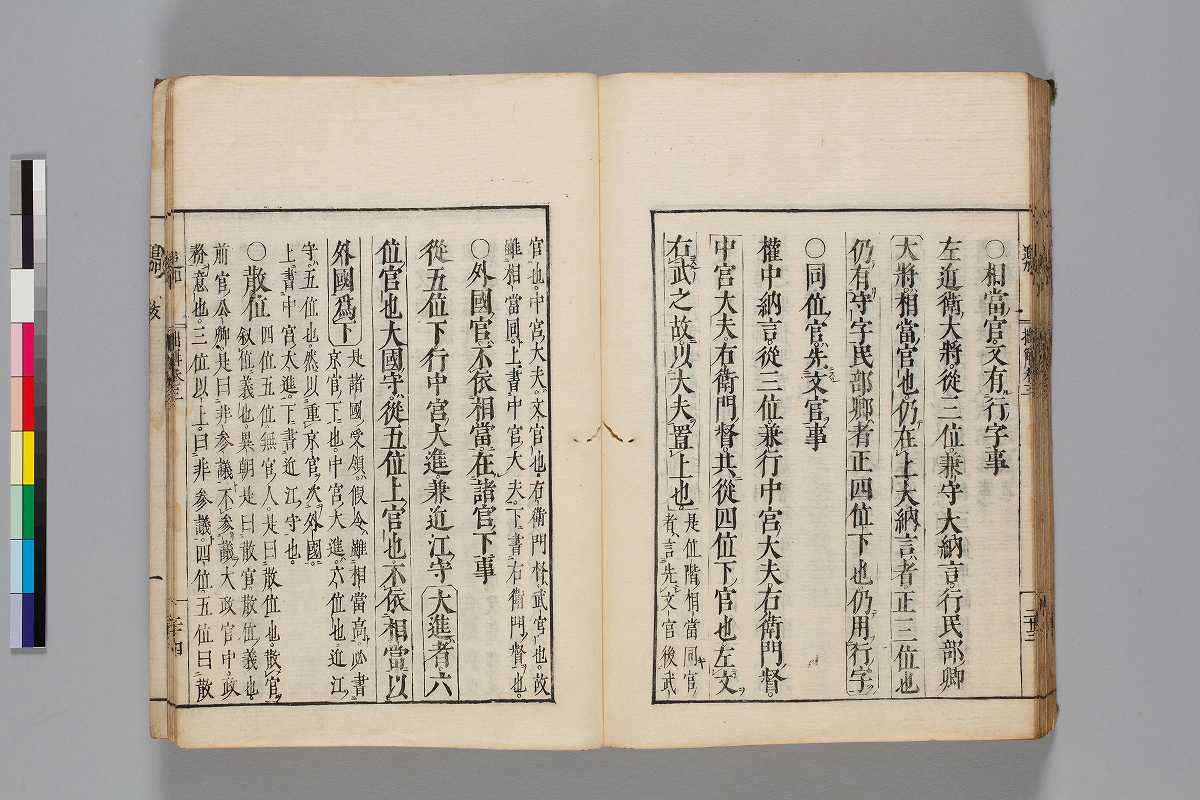 ○相當官文有行字事
左近衛大將從三位兼守大納言行民部卿
大將相當官也仍在上大納言者正三位也
仍有守字民部卿者正四位下也仍用行字
○同位官先文官事
權中納言從三位兼行中宮大夫右衛門督
中宮大夫右衛門督共從四位下官也左文
右武之故以大夫置上也
是位階相當同官
者言先文官後武
官也中宮大夫文官也右衛門督武官也故
雖相當同上書中官大夫下書右衛門督也
○外國官不依相當在諸官下事
從五位下行中宮大進兼近江守大進者六
位官也大國守從五位上官也不依相當以
外國爲下
是諸國受領假令雖相當高必書
京官下也中宮大進六位也近江
守五位也然以重京官次外國
上書中宮大進下書近江守也
○散位
四位五位無官人是曰散位也散官
叙位義也異朝是曰散官散位義也
前官公卿是曰非参議不参議大政官中政
務意也三位以上曰非参議四位五位曰散
二十三
二十四